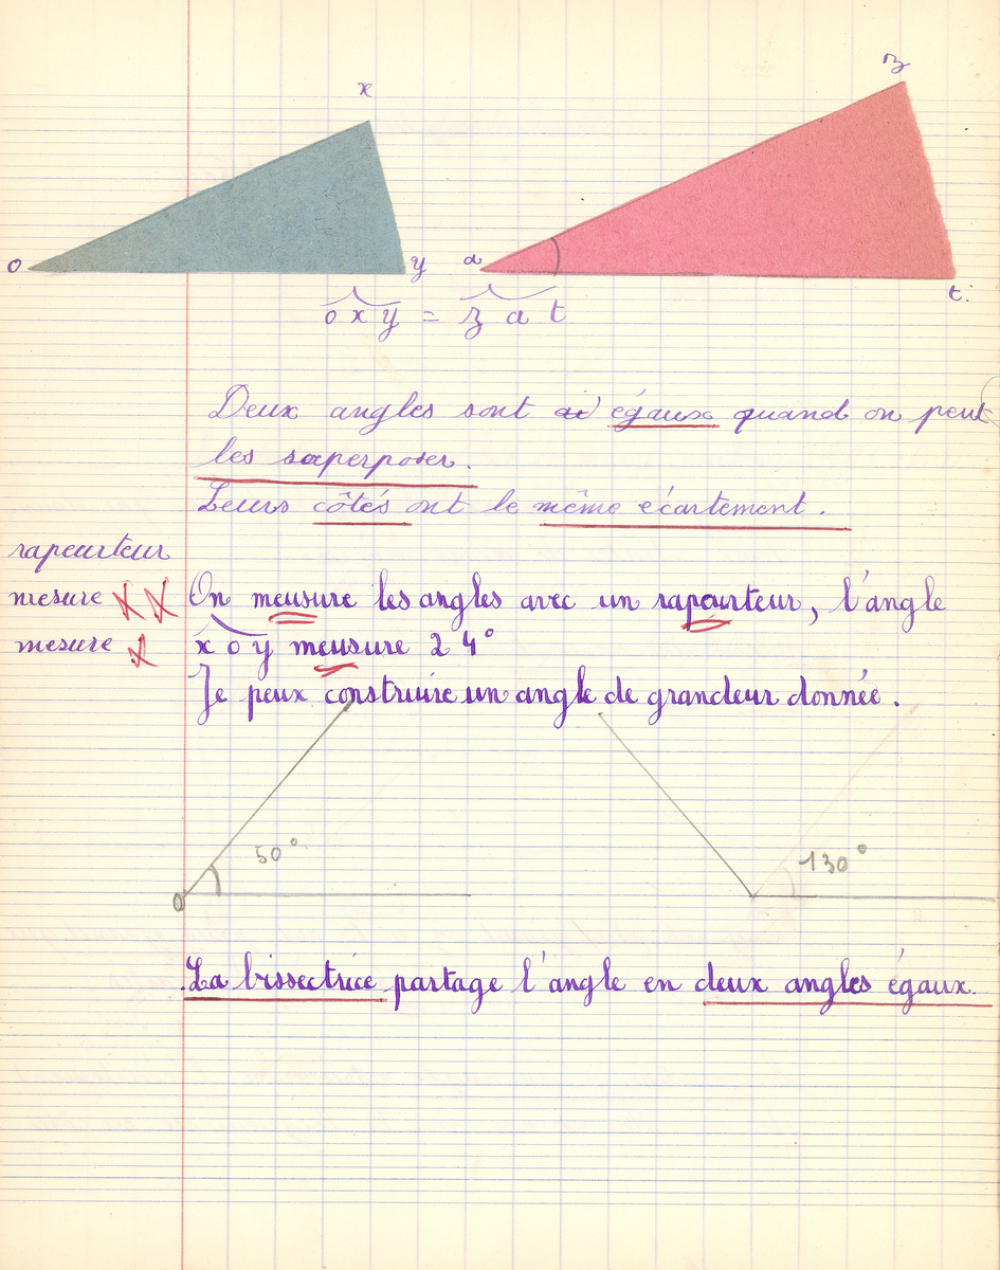 x
z
o
y
a
t.
o x y = z a t
Deux angles sont égaux quand on peut
les superposer.
Leurs côtés ont le même écartement.
rapeurteur
mesure On meusure les angles avec un rapourteur, l'angle
mesure x o y meusure 24°
Je peux construire un angle de grandeur donnée.
50°
130°
O
La bissectrice partage l'angle en deux angles égaux.